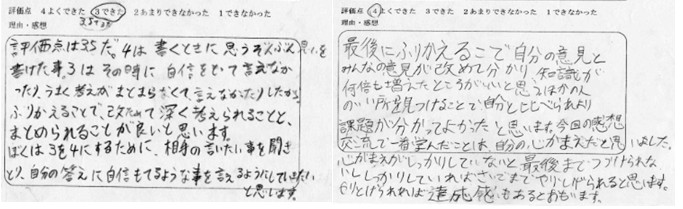 評価点 4よくできた 3できた 2あまりできなかった 1できなかった
理由・感想 3.5です
評価点は3.5だ。4は書くときに思うぞんぶん思いを
書けた事。3はその時に自信をもって言えなか
ったり、うまく考えがまとまらなくて言えなかったりしたから。
ふりかえることで、改ためて深く考えられることと、
まとめられることが良いと思います。
ぼくは3を4にするために、相手の言いたい事を聞き
とり、自分の答えに自信もてるような事を言えるようにしていきたい
と思います。
評価点 4よくできた 3できた 2あまりできなかった 1できなかった
理由・感想
最後にふりかえるこで自分の意見と
みんなの意見が改めて分かり、知識が
何倍も増えたところがいいと思うほかの人
のいい所を見つけることで自分とくらべられより
課題が分かってよかったと思います。今回の感想
交流で一番学んだことは、自分の、心がまえだと思いました。
心がまえがしっかりしていないと最後までつづけられな
いししっかりしていればさいごまでやりとげられると思います。
やりとげられれば達成感もあるとおもいます。